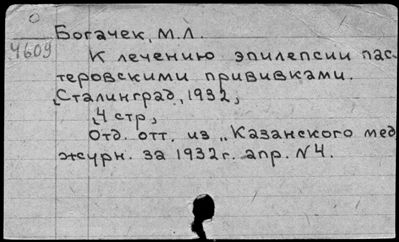 Богачек, М.Л.
4609
К лечению эпилепсии пас-
теровскими прививками.
Сталинград, 1932,
4 стр,
Отд. отт. из „Казанского мед
журн. за 1932г. апр. №4.